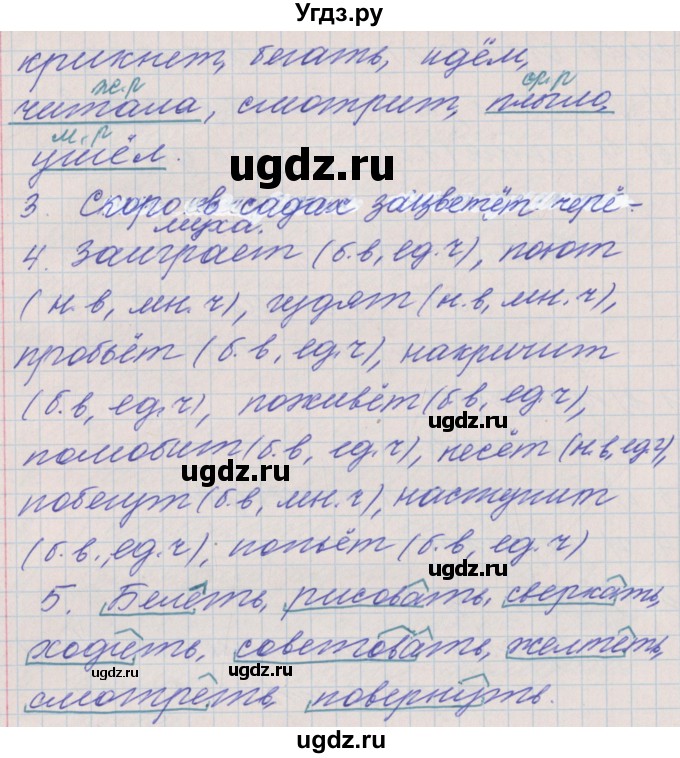 Угдз.ру
крикнет, бегать, идём,
ж.р ср.р
читала, смотрит, плыло,
м.р
ушёл.
ugdz.ru
3. Скоро в садах зацветёт черё-
муха.
4. Заиграет (б.в, ед.ч), поют
(н.в, мн.ч), гудят (н.в, мн.ч),
пробьёт (б.в, ед.ч), накричит
(б.в, ед.ч), поживёт (б.в, ед.ч),
ugdz.ru
полюбит (б.в, ед.ч), несёт (н.в, ед.ч),
ugdz.ru
побегут (б.в, мн.ч), наступит
(б.в., ед.ч), попьёт (б.в, ед.ч)
ugdz.ru
5. Белеть, рисовать, сверкать,
ходить, советовать, желтеть,
ugdz.ru
смотреть, повернуть.
ugdz.ru